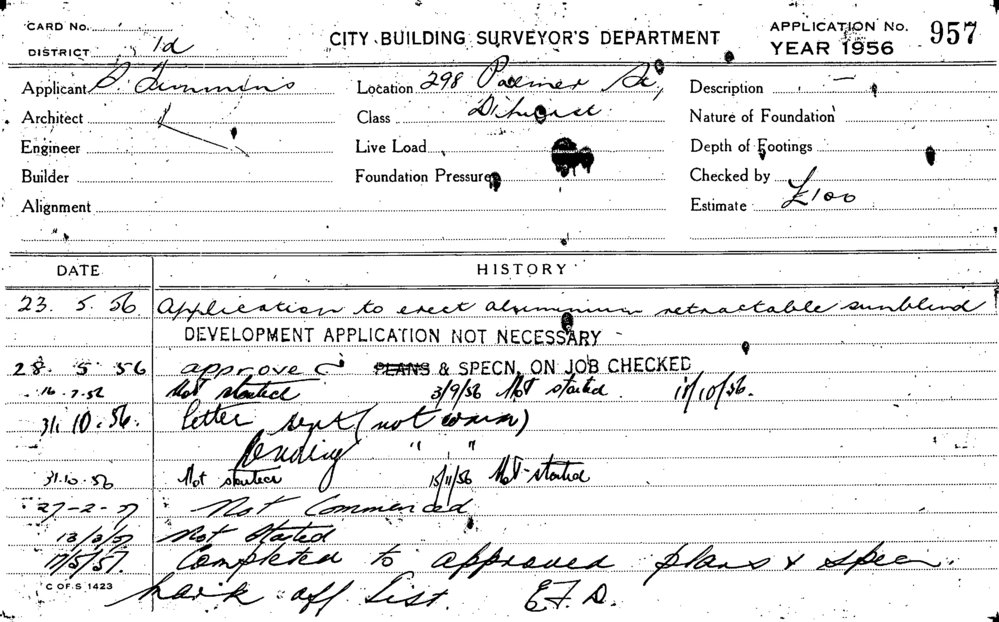 CARD No.
DISTRICT 1d
CITY BUILDING SURVEYOR'S DEPARTMENT
APPLICATION No. 957
YEAR 1956
Applicant S. Timmins
Location 298 Palmer St,
Description —
Architect
Class D'hurst
Nature of Foundation
Engineer
Live Load
Depth of Footings
Builder
Foundation Pressure
Checked by
Alignment
Estimate £100
"
DATE HISTORY
23. 5. 56 Application to erect aluminium retractable sunblind
DEVELOPMENT APPLICATION NOT NECESSARY
28. 5. 56 approved PLANS & SPECN. ON JOB CHECKED
16.7.56 Not started 3/9/56 Not started 11/10/56.
31. 10. 56. letter sent (not worn)
Pending " "
31.10.56 Not started 15/11/56 Not started
27-2-57 Not Commenced
13/3/57 Not Started
17/5/57. Completed to approved plans & specn.
C OF S 1423
mark off list. E.F.D.